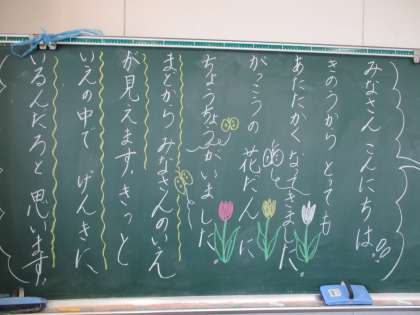 みなさん こんにちは!!
きのうから とっても
あたたかくなってきました。
がっこうの 花だんに
ちょうちょうがいました。
まどから みなさんのいえ
が見えます。きっと
いえの中で げんきに、
いるんだろと 思います。